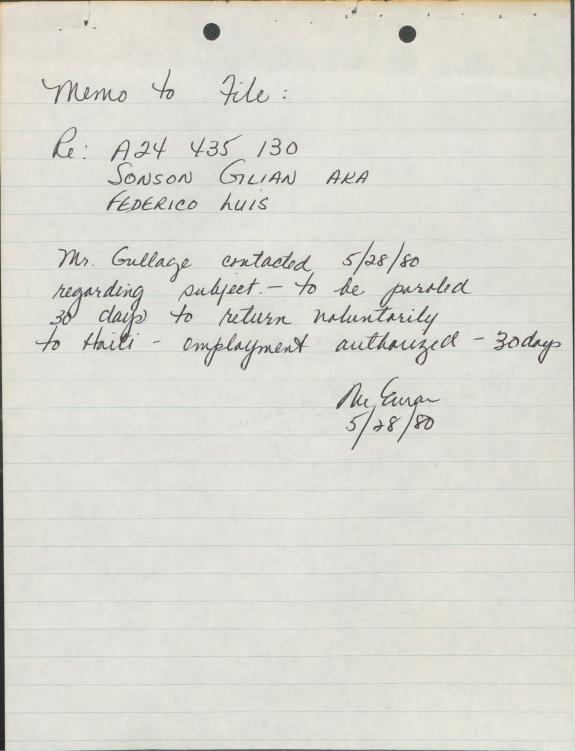 Memo to File:
Re: A24 435 130
SONSON GILIAN AKA
FEDERICO LUIS
Mr. Gullage contacted 5/28/80
regarding subject. - to be paroled
30 days to return voluntarily
to Haiti - employment authorized - 30 days
5/28/80